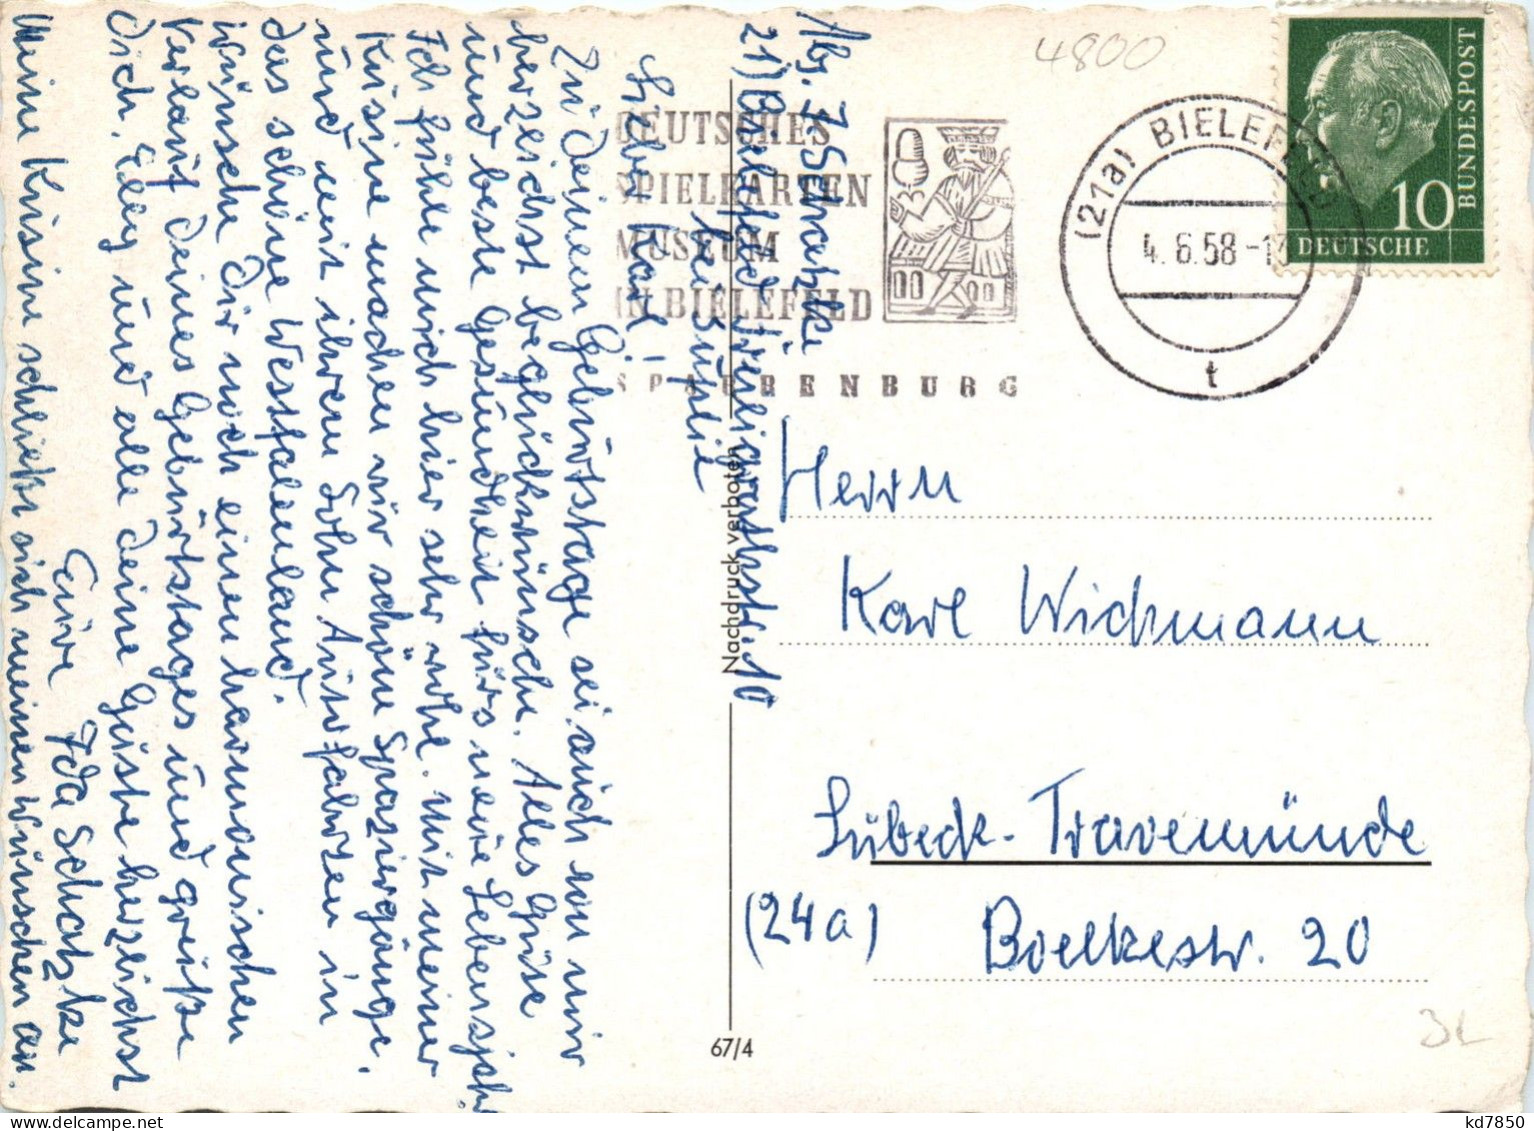 Abs. I. Schatzke
21) Bielefeld Freiligrathstr. 10
bei Büptit
Lieber Karl!
Zu Deinem Geburtstage sei auch von mir
herzlichst beglückwünscht. Alles Gute
und beste Gesundheit fürs neue Lebensjahr.
Ich fühle mich hier sehr wohl. Mit meiner
Kusine machen wir schöne Spaziergänge.
und mit ihrem Sohn Autofahrten in
das schöne Westfalenland.
Wünsche Dir noch einen harmonischen
Verlauf Deines Geburtstages und grüße
Dich, Elly und alle Deine Gäste herzlichst
Eure Ida Schatzke
Meine Kusine schließt sich meinen Wünschen an.
DEUTSCHES
SPIELKARTEN
MUSEUM
IN BIELEFELD
SPARRENBURG
4800
(21a) BIELEFELD
4.6.58-13
t
10
DEUTSCHE
BUNDESPOST
Nachdruck verboten
67/4
Herrn
Karl Wichmann
Lübeck-Travemünde
(24a) Boelkestr. 20
BL
kd7850